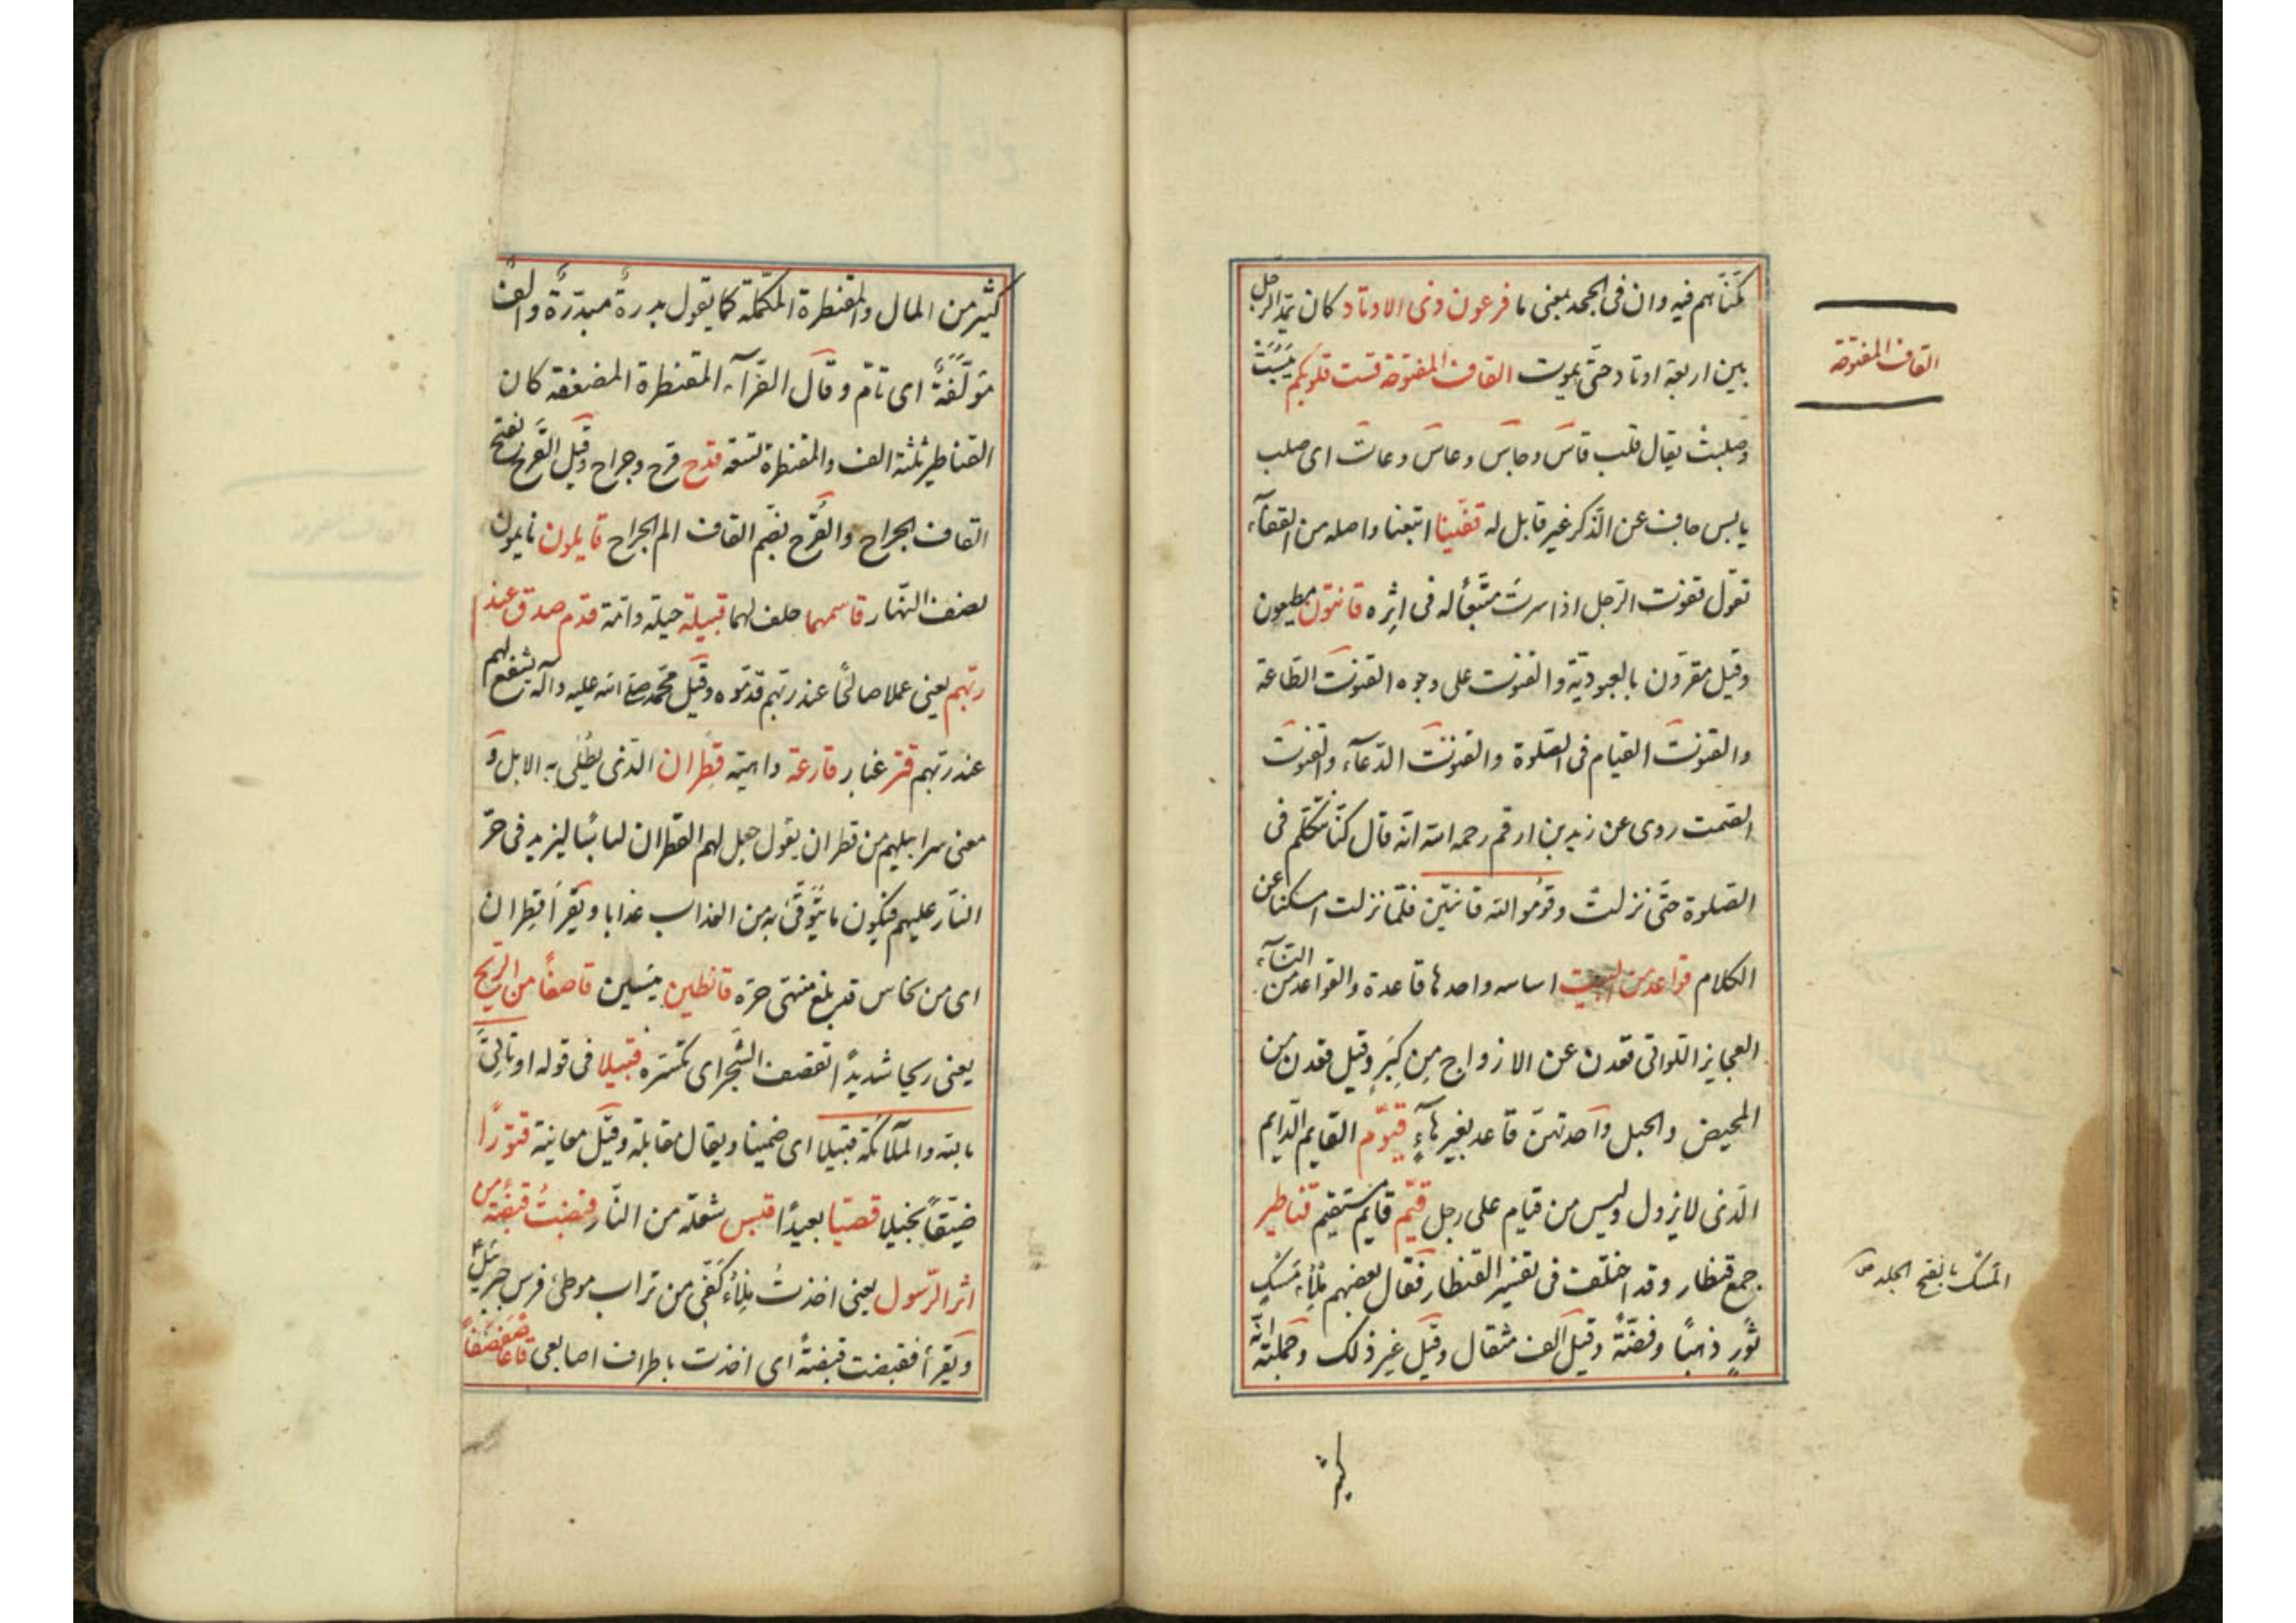 مكّنّاهم فيه وان فى الجحد بمعنى ما فرعون ذى الاوتاد كان يمدّ الرجل
بين اربعة اوتاد حتّى يموت القاف المفتوحة قست قلوبكم يَبِسَتْ
القاف المفتوحة
وصلبتْ يقال قلب قاس وجاس وعاس وعات اى صلب
يابس جاف عن الذّكر غير قابل له قفّينا اتبعنا واصله من القفآء
تقول قفوت الرّجل اذا سرت متّبعًا له فى اثره قانتون مطيعون
وقيل مقرّون بالعبوديّة والقنوت على وجوه القنوت الطّاعة
والقنوت القيام فى الصّلوة والقنوت الدّعآء والقنوت
الصّمت روى عن زيد بن ارقم رحمه الله انّه قال كنّا نتكلّم فى
الصّلوة حتّى نزلت وقوموا لله قانتين فلمّا نزلت امسكنا عن
الكلام قواعد من البيت اساسه واحدها قاعدة والقواعد من النّسآء
العجايز اللواتى قعدن عن الازواج مِن كِبَرٍ وقيل قعدن من
المحيض والحبل واحدتهنّ قاعد بغير هآءٍ قيّوم القايم الدّايم
الّذى لا يزول وليس من قيام على رجل قيّم قايم مستقيم قناطير
جمع قنطار وقد اختلف فى تفسير القنطار فقال بعضهم مِلْأُ مَسْكِ
المَسْك بالفتح الجلد ص
ثَورٍ ذهبًا وفضّةً وقيل الف مثقال وقيل غير ذلك وجملته انّه
كثير
كثير من المال والمقنطرة المكمّلة كما يقول بدرةٌ مبدّرةٌ والفٌ
مؤلّفةٌ اى تامّ وقال الفرّآء المقنطرة المضعفة كان
القناطير ثلثة الف والمقنطرة تسعة قدح قرح وجراح وقيل القَرح بفتح
القاف الجراح والقُرح بضم القاف الم الجراح قايلون نايمون
نصف النّهار قاسمهما حلف لهما قبيلة جيله وامّة قدم صدق عند
ربّهم يعنى عملا صالحًا عند ربّهم قدّموه وقيل محمّد صلى الله عليه وآله يشفع لهم
عند ربّهم قتر غبار قارعة داهية قطران الّذى يُطلى به الابل و
معنى سرابيلهم من قطران يقول جعل لهم القطران لباسًا ليزيد فى حرّ
النّار عليهم فيكون ما يُتوقّى به من العذاب عذابا ويقرأ قطران
اى من نحاس قد بلغ منتهى حرّه قانطين يئسين قاصفًا من الرّيح
يعنى ريحا شديدًا تقصف الشّجر اى تكسّره قبيلا فى قوله او تأتى
بالله والملآئكة قبيلا اى ضمينا ويقال مقابلة وقيل معاينة قتورًا
ضيّقًا بخيلا قصيّا بعيدًا قبس شعلة من النّار فقبضتُ قبضةً من
اثر الرّسول يعنى اخذتُ مِلْأَ كَفّى من تراب موطئ فرس جبرئيل ع
ويقرأ فقبضت قبضةً اى اخذت باطراف اصابعى قاعا صفصفًا